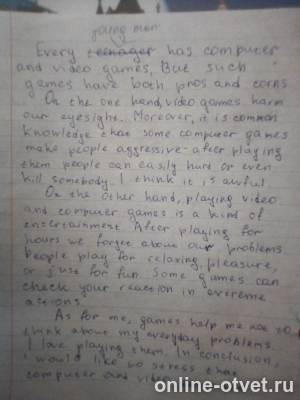 young men
Every teenager has computer
and video games, But such
games have both pros and corns
On the one hand, video games harm
our eyesight. Moreover, it is common
knowledge that some computer games
make people aggressive - after playing
them people can easily hurt or even
kill somebody. I think it is awful
On the other hand, playing video
and computer games is a kind of
entertainment. After playing for
hours we forget about our problems.
People play for relaxing, pleasure,
or just for fun. Some games can
check your reaction in extreme
actions.
As for me, games help me not to
think about my everyday problems.
I love playing them. In conclusion,
I would like to stress that
computer and video
online-otvet.ru